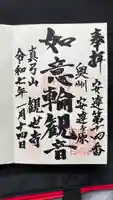 奉拝
安達第十四番
奥州安達
如意輪観音
真弓山
観世寺
令和七年一月十四日